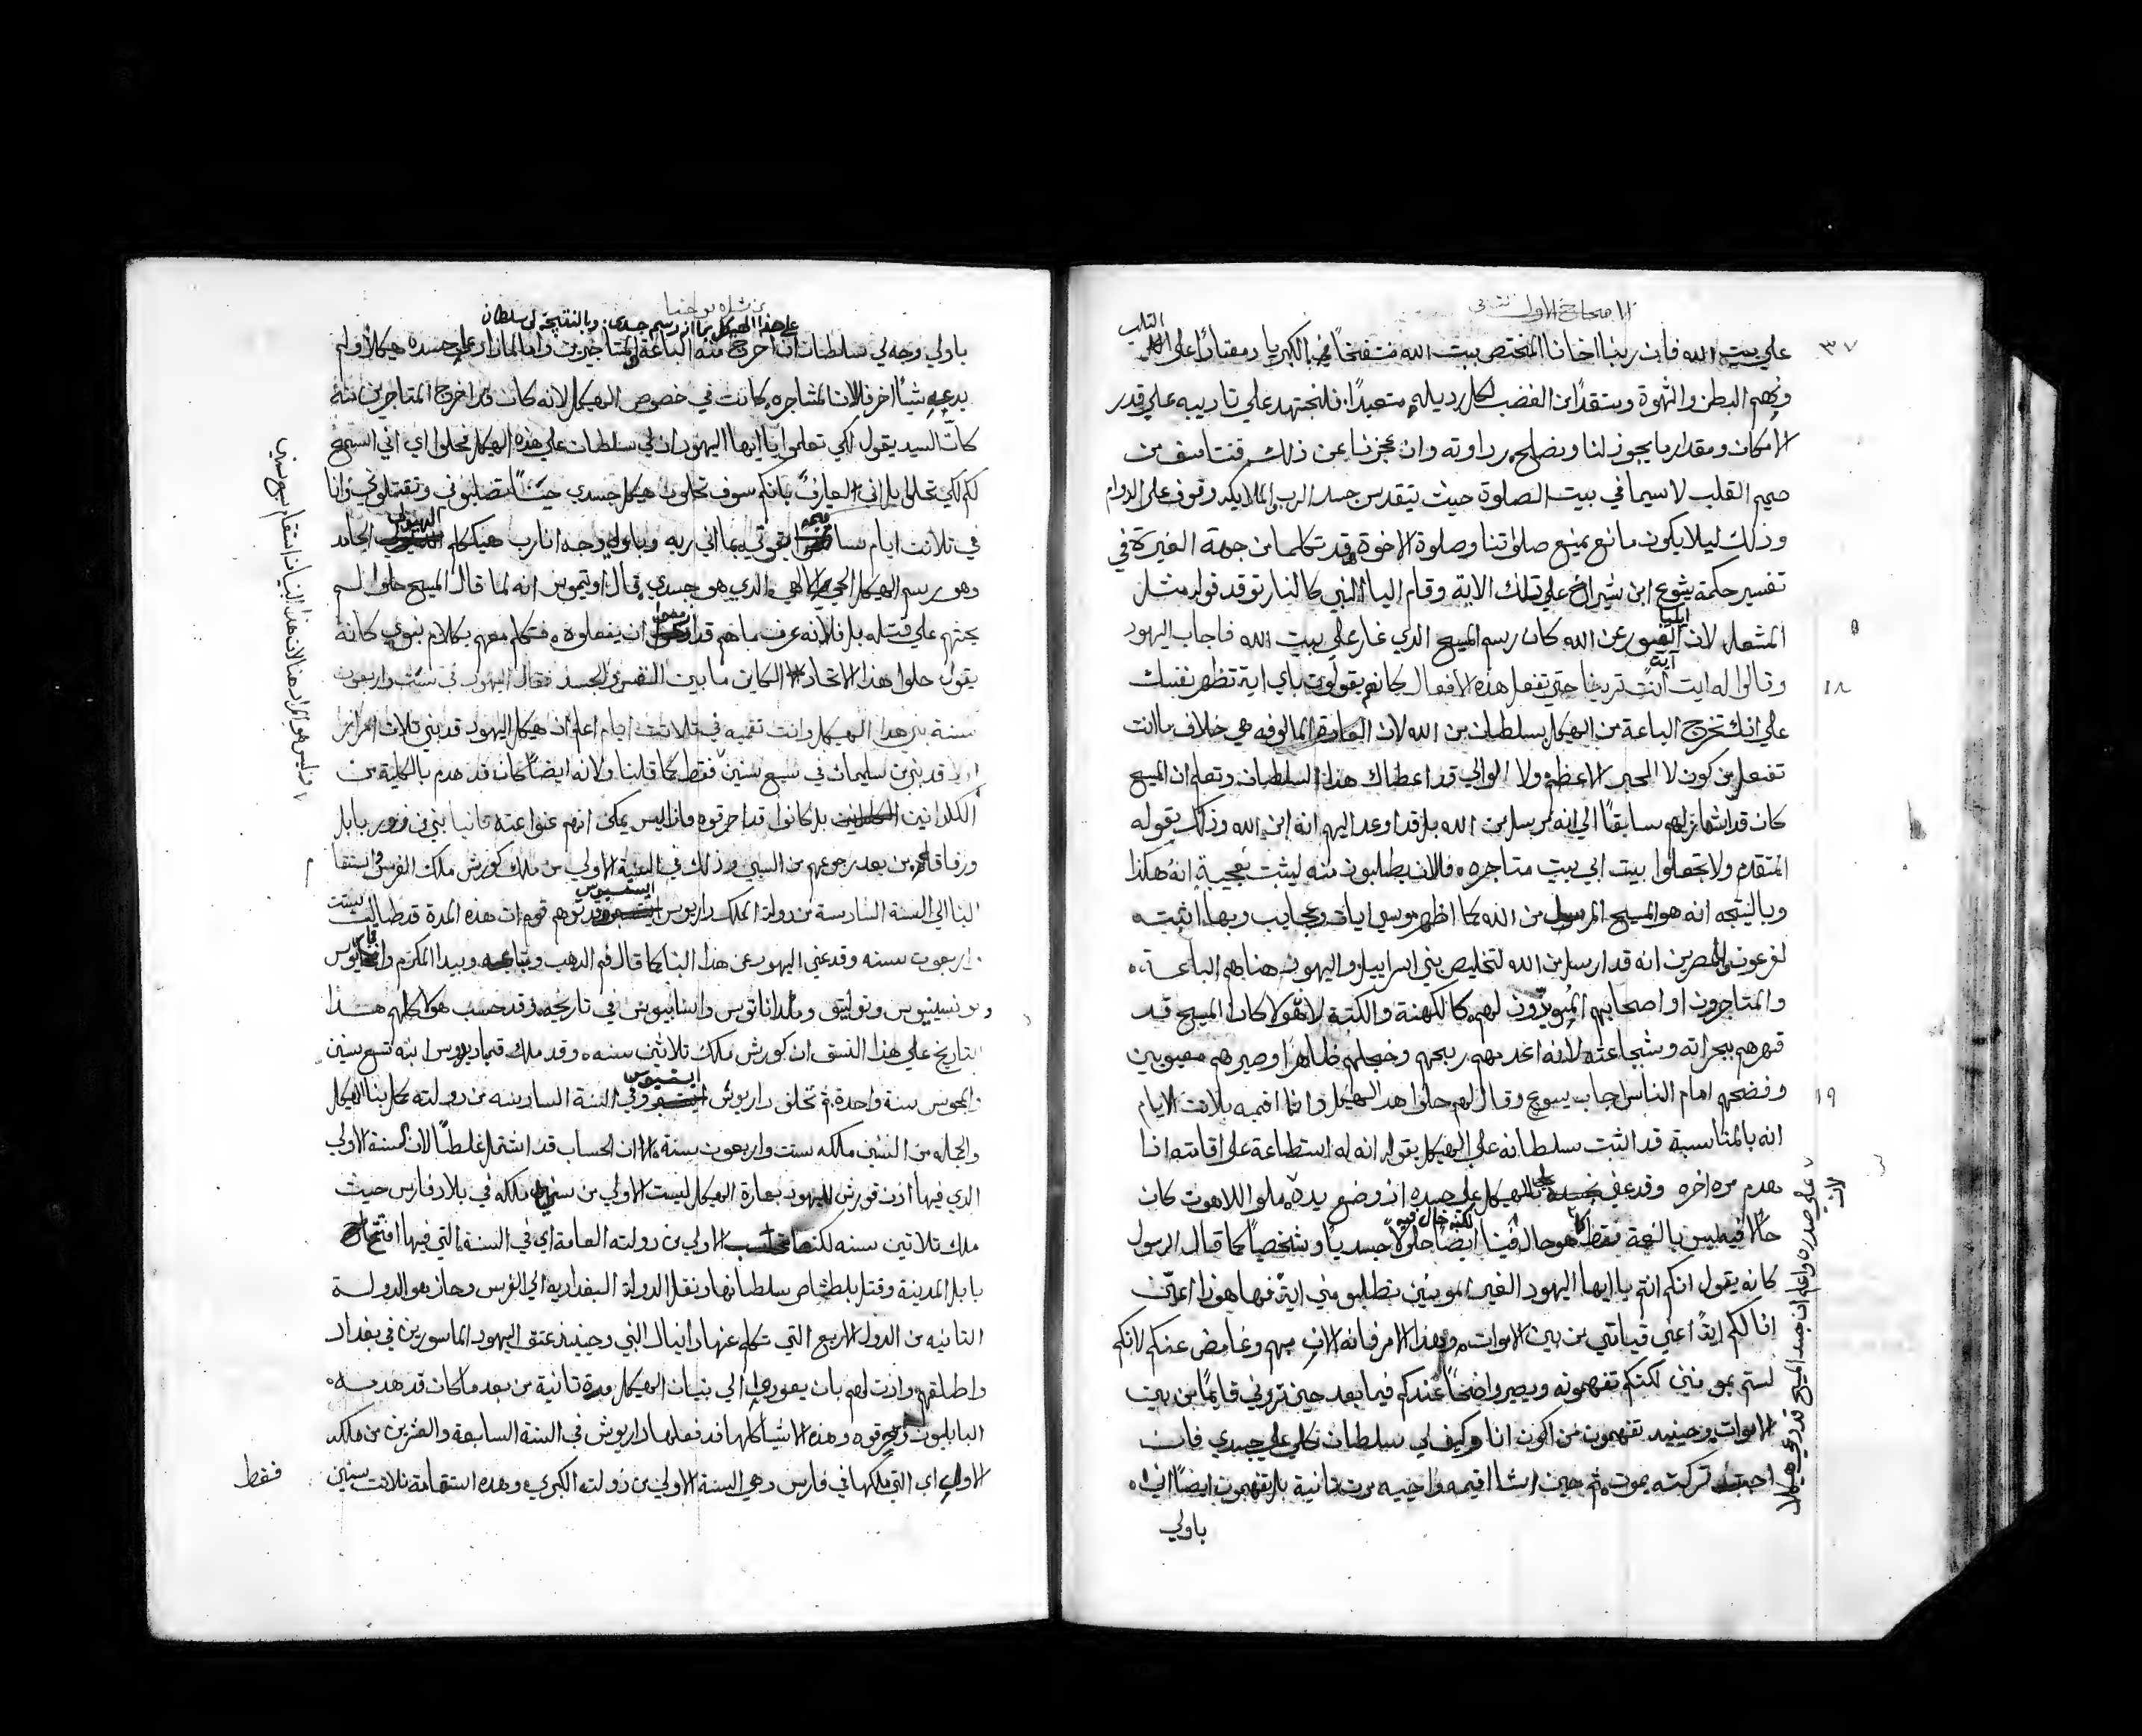 الاصحاح الاول الثاني
٣٧
علي بيت الله فان رينا اخانا المختص ببيت الله منتفخًا في الكبريا ومفتاظًا علي
القلب
وفهم البطن والشهوة ومتقدًا من الغضب لكل رديله متعبدًا. فلنجتهد علي تاديبه علي قدر
الامكان ومقدار ما يجوز لنا ونصلح رداوته وان عجزنا عن ذلك فنتاسف من
صميم القلب لاسيما في بيت الصلوة حيث يتقدس جسد الرب والملايكه وقوف علي الدوام
وذلك ليلا يكون مانع يمنع صلواتنا وصلوة الاخوة وقد تكلمنا من جهة الغيرة في
تفسير حكمة يشوع ابن شيراخ علي تلك الاية وقام ايليا النبي كالنار توقد قوله مثل
المشعل لان ايليا الغيور عن الله كان رسم المسيح الذي غار علي بيت الله فاجاب اليهود
١٨
وقالوا له ايت آية انت ترينا حتي تفعل هذه الافعال كانهم يقولون باي اية تظهر نفسك
علي انك تخرج الباعة من الهيكل بسلطان من الله لان العادة المالوفه هي خلاف ما انت
تفعل من كون لا الحبر الاعظم ولا الوالي قد اعطاك هذا السلطان وتعلم ان المسيح
كان قد اشار لهم سابقًا الي انه مرسل من الله بل قد اوعد اليهم انه ابن الله وذلك بقوله
المتقدم ولا تجعلوا بيت ابي بيت متاجره فالان يطلبون منه ليثبت بعجيبة انه هكذا
وبالنتيجه انه هو المسيح المرسول من الله كما اظهر موسي ايات وعجايب وبها اثبته
لفرعون والمصريين انه قد ارسل من الله لتخليص بني اسراييل واليهود هنا هم الباعة
والمتاجرون او اصحابهم المويدون لهم كالكهنة والكتبة لان هولا كان المسيح قد
قهرهم بجراته وشجاعته لانه اعدمهم ربحهم وخجلهم ظاهرًا وصيرهم معيوبين
١٩
وفضحهم امام الناس اجاب يسوع وقال لهم حلوا هذا الهيكل وانا اقيمه بثلاث الايام
انه بالمناسبة قد اثبت سلطانه علي الهيكل بقوله انه له استطاعة علي اقامته اذا
هدم مره اخره وقد عني بالهيكل علي جسده اذ وضع يده ملو اللاهوت كان
حالًا فيه ليس بالنعمة فقط كما هو حال فينا ايضًا لكنه حال فيه حلولًا جسديًا وشخصيًا كما قال الرسول
كانه يقول انكم انتم يا ايها اليهود الغير المومنين تطلبون مني اية فها هوذا اعطي
انا لكم ايةً اعني قيامتي من بين الاموات وهذا الامر فانه الان مبهم وغامض عنكم لانكم
لستم بمومنين لكنكم تفهمونه ويصير واضحًا عندكم فيما بعد حين تروني قايمًا من بين
الاموات وحينيد تفهمون من اكون انا وكيف لي سلطان كلي علي جسدي فان
احببت تركته يموت ثم حين اشا اقيمه واحييه مرت ثانية بل تفهمون ايضًا اني
باولي
علي صدره واعلم ان جسد المسيح قد دعي هيكلا
لان
من بشاره يوحنا
علي هذا الهيكل بما انه رسم جسدي. وبالنتيجة لي سلطان
باولي وجه لي سلطان ان اخرج منه الباعة والمتاجرين واما لماذا دعي جسده هيكلًا ولم
يدعيه شيئًا اخر فالان المشاجره كانت في خصوص الهيكل لانه كان قد اخرج المتاجرين منه
كانّ السيد يقول لكي تعلموا يا ايها اليهود ان لي سلطان علي هذه الهيكل فحلوا اي اني اسمح
لكم لكي تحلوا بل اني العارف بانكم سوف تحلون هيكل جسدي حيثًا تصلبوني وتقتلوني وانا
في ثلاثت ايام اقيمه بقوتي بما اني ربه وباولي وجه انا رب هيكلكم اليهودي الجامد
وهو رسم الهيكل الحي الالهي الذي هو جسدي قال اوتيموس انه لما قال المسيح حلوا لم
يحثهم علي قتله بل فلانه عرف ما هم قد رمعوا ان يفعلوه فتكلم معهم بكلام نبوي كانه
يقول حلوا هذا الاتحاد الكاين ما بين النفس والجسد فقال اليهود في ست واربعون
سنة بني هذا الهيكل وانت تقيمه في ثلاثت ايام اعلم ان هيكل اليهود قد بني ثلاث امرار
اولا قد بني من سليمان في سبع سنين فقط كما قلنا ولانه ايضًا كان قد هدم بالكلية من
الكلدانيين بل كانوا قد احرقوه فاذًا ليس يمكن انهم عنوا عنه ثانيا بني من زور بابل
ورفاقه من بعد رجوعهم من السبي وذلك في السنة الاولي من ملك كورش ملك الفرس واستقا
البنا الي السنة السادسة من دولة الملك داريوس ايستسيوس قد توهم قوم ان هذه المدة قد طالت ستت
واربعون سنه وقد عني اليهود عن هذا البنا كما قال فم الذهب وتباعه وبيدا المكرم
في تاريخه وقد حسب هولا كلهم هذا
التاريخ علي هذا النسق ان كورش ملك ثلاثين سنه وقد ملك ابنه تسع سنين
والمجوس سنة واحدة ثم تخلف داريوش ايستسيوس وفي السنة السادسه من دولته كمل بنا الهيكل
والجمله من السنين ملكه ست واربعون سنة الا ان الحساب قد اشتمل غلطًا لان السنة الاولي
الذي فيها اذن قورش لليهود بعمارة الهيكل ليست الاولي من سني ملكه في بلاد فارس حيث
ملك ثلاثين سنه لكنها الاولي من دولته العامة اي في السنة التي فيها افتتح
بابل المدينة وقتل بلطشاصر سلطانها ونقل الدولة البغداديه الي الفرس وحاز هو الدولة
الثانيه من الدول الاربع التي تكلم عنها دانيال النبي وحينيذ عتق اليهود الماسورين في بغداد
واطلقهم واذن لهم بان يعودوا الي بنيان الهيكل مرة ثانية من بعد ما كان قد هدمه
البابليون وحرقوه وهذه الاشيا كلها قد فعلها داريوش في السنة السابعة والعشرين من ملكه
الاولي اي التي ملكها في فارس وهي السنة الاولي من دولته الكبري وهذه استقامة ثلاثت سنين
فقط
وليس هو المراد هنا لان هذا البنيان استقام سبع سنين